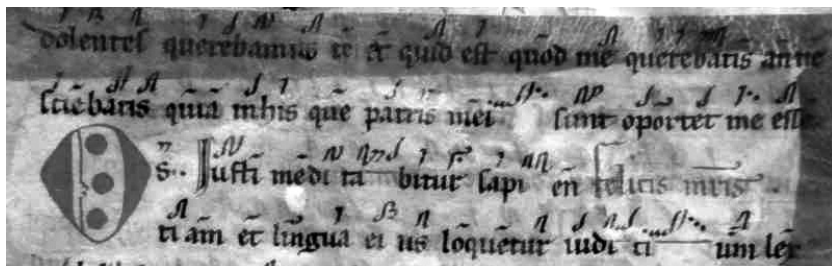 dolentes querebamus te et quid est quod me querebatis anne
sciebatis quia in his que patris mei sunt oportet me esse
Os Iusti medi ta bitur sapi en felicis mris
ti am et lingua ei us loquetur iudi ti um lex